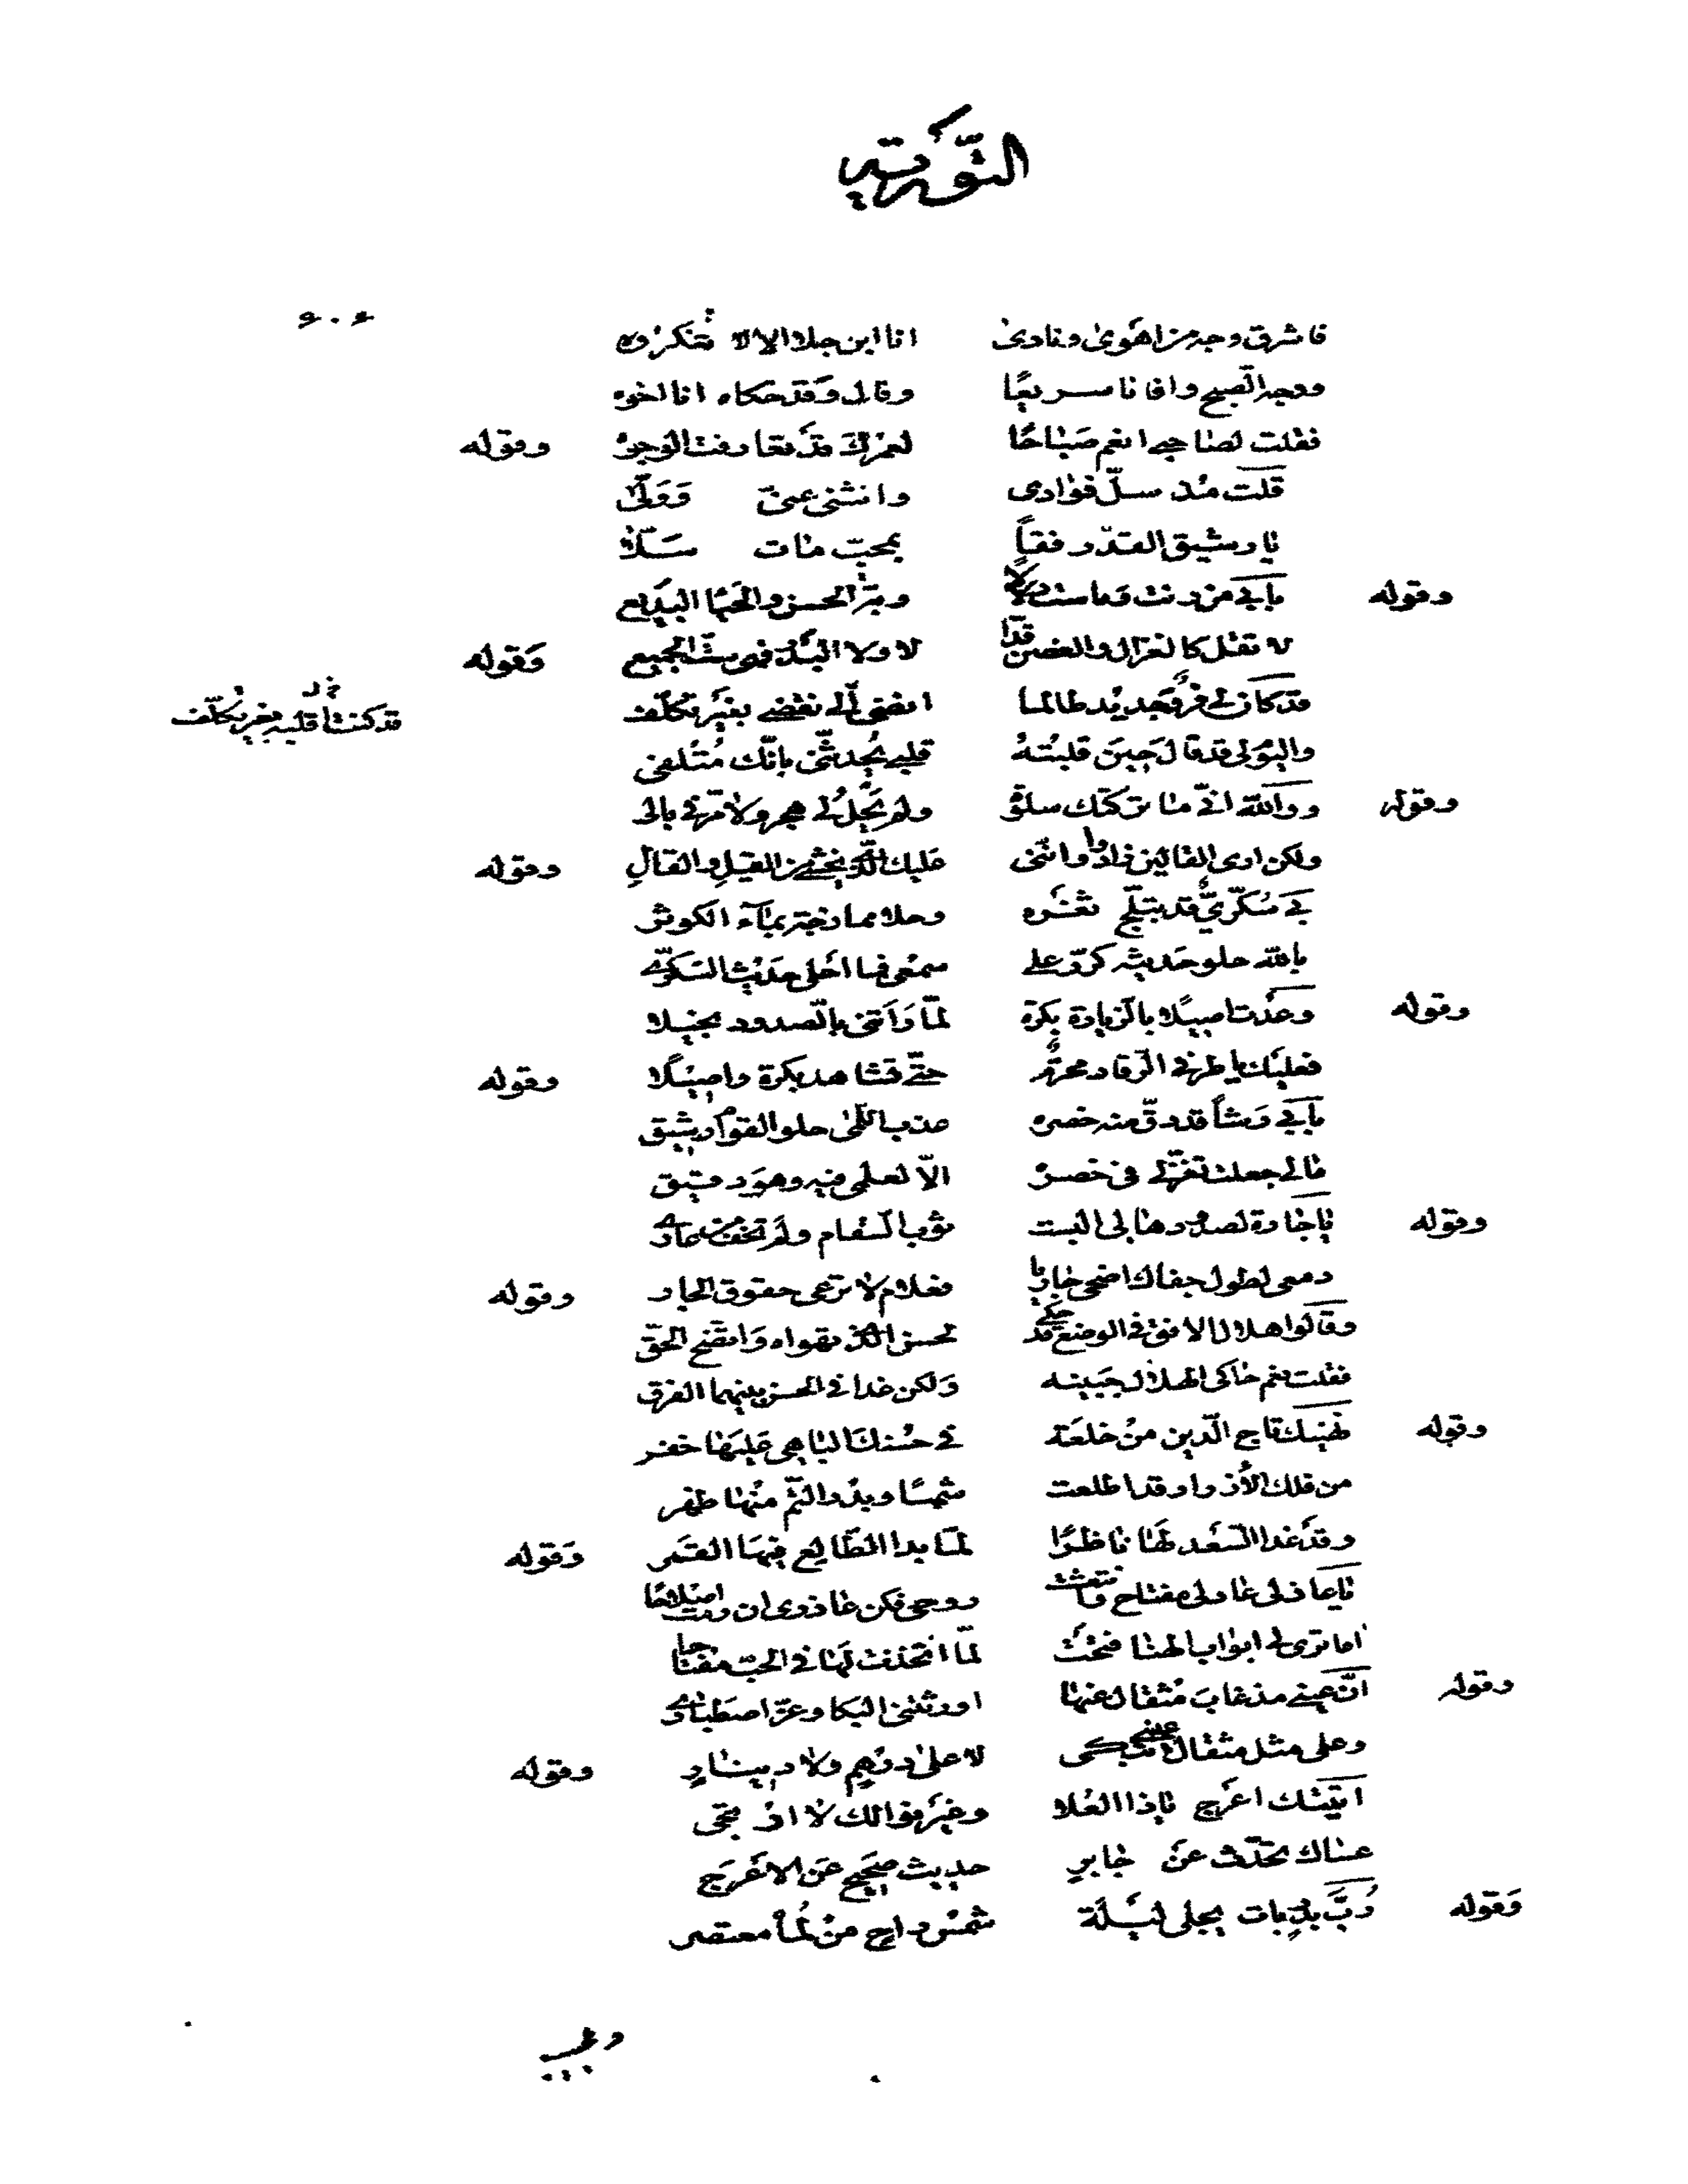 التورية
فاشرق وجه من اهوى ونادى انا ابن جلا الا لا تنكروه
ووجه الصبح وافانا سريعًا وقال وقد حكاه انا اخوه
فقلت لصاحبي انعم صَبَاحًا لعمرك قد تعارفت الوجوه وقوله
قلت مذ سلّ فؤادي وانثنى عني وَوَلّى
يا رشيق القدّ رفقاً بمحبّ مات سلّا
وقوله بابي من رنت وماست دلالا وبهر الحسن والحيا البديع
لا تقل كالغزال والغصن قدّا لا ولا البدر فهي ست الجميع وَقوله
قد كان لي فرو جديد طالما امضى الى بغير تكلف
قد كنت اقلبه بغير تكلّف
واليوم لي قد قال حين قلبتهُ قلبي يُحدثني بانّك مُتْلفي
وقوله ووالله اني ما تركتك سلوة ولم يَحلُ لي هجر ولا مرّ في بالى
ولكن ارى القالين زادوا وانني عليك الذي يخشى من القيل والقالِ وقوله
في سُكّريّ قد تبلّج ثغره وحلا ممازجة بمآء الكوثر
بالله حلو حديثه كرّر على سمعي فما احلى حديث السكري
وقوله وعدْت اصيلًا بالزيارة بكرة لمّا رَاَتني بالصدود بخيلا
فعليك يا طرفي الرقاد محرّم حتّى تشاهد بكرة واصيلًا وقوله
بابي رَشاً قد دقّ منه خصره عذب اللّمى حلو القوام رشيق
مالي جعلت تغزّلي في خصره الاّ لعلمي فيه وهو دقيق
وقوله يا جارة لصدودها لي البست ثوب السقام ولم تخف من عار
دمعي لطول جفاك اضحى جاريا فعلام لا ترعى حقوق الجار وقوله
وقالوا هلال الافق في الوضع قد حكى لحسن الذي تهواه وَاتضح الحقّ
فقلت نعم حاكى الهلال جبينه وَلكن غدا في الحسن بينهما الفرق
وقوله تهنيك تاج الدّين منْ خلعَة في حسنك الباهي عليها خفر
من فلك الأزرار قد اطلعت شمسًا وبدر التمّ منها ظهر
وقد غدا السّعد لها ناظرًا لمّا بدا الطّالع فيها القمر وَقوله
يا عاذلي عادلي مفتاح روحي فكن عاذري ان رمت اصلاحًا
اما ترى لي ابواب الهنا فتحَت لمّا اتخذت لها في الحبّ مفتاحا
وقوله انّ عيني مذ غابَ مثقال عنها اورثتني البكا وعزّ اصطباري
وعلى مثل مثقال عيني تبكي لا على درهمٍ ولا دينارِ وقوله
اتيتك اعرج ياذا العُلا وغير نوالك لا ارتجى
عساك تحَدّث عن جابرٍ حديث صحيح عَن الاعْرَج
وَقوله رُبّ بات يجلى ليلَة شمْس راحٍ منْ لُما معتصر